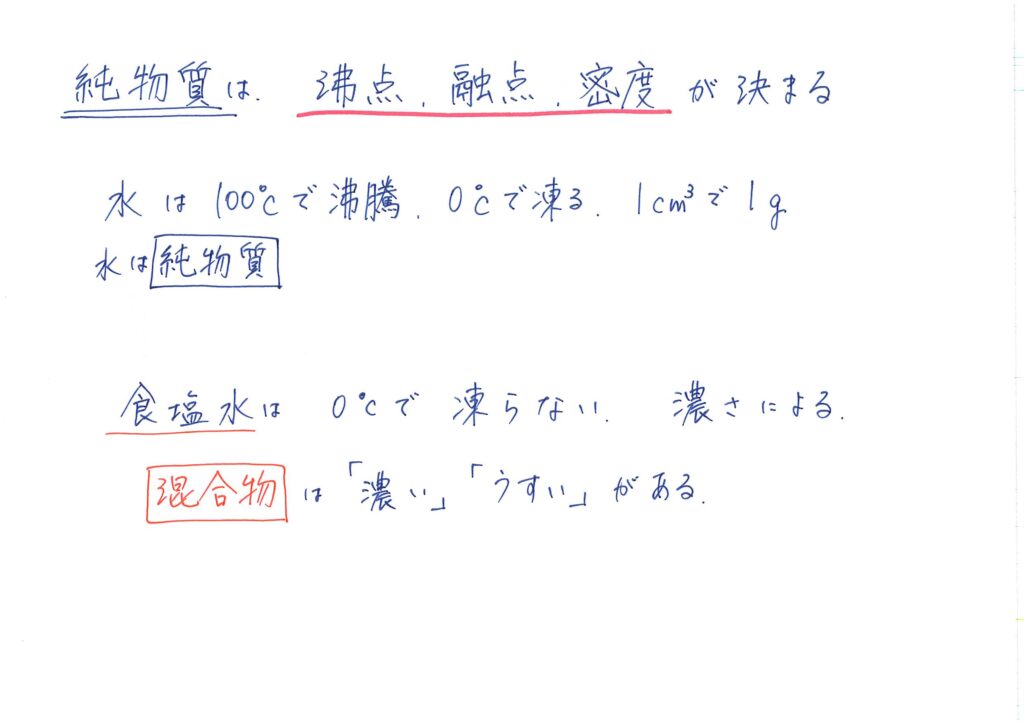 純物質は、沸点、融点、密度が決まる
水は100℃で沸騰、0℃で凍る、1cm³で1g
水は純物質
食塩水は0℃で凍らない。濃さによる。
混合物は「濃い」「うすい」がある。